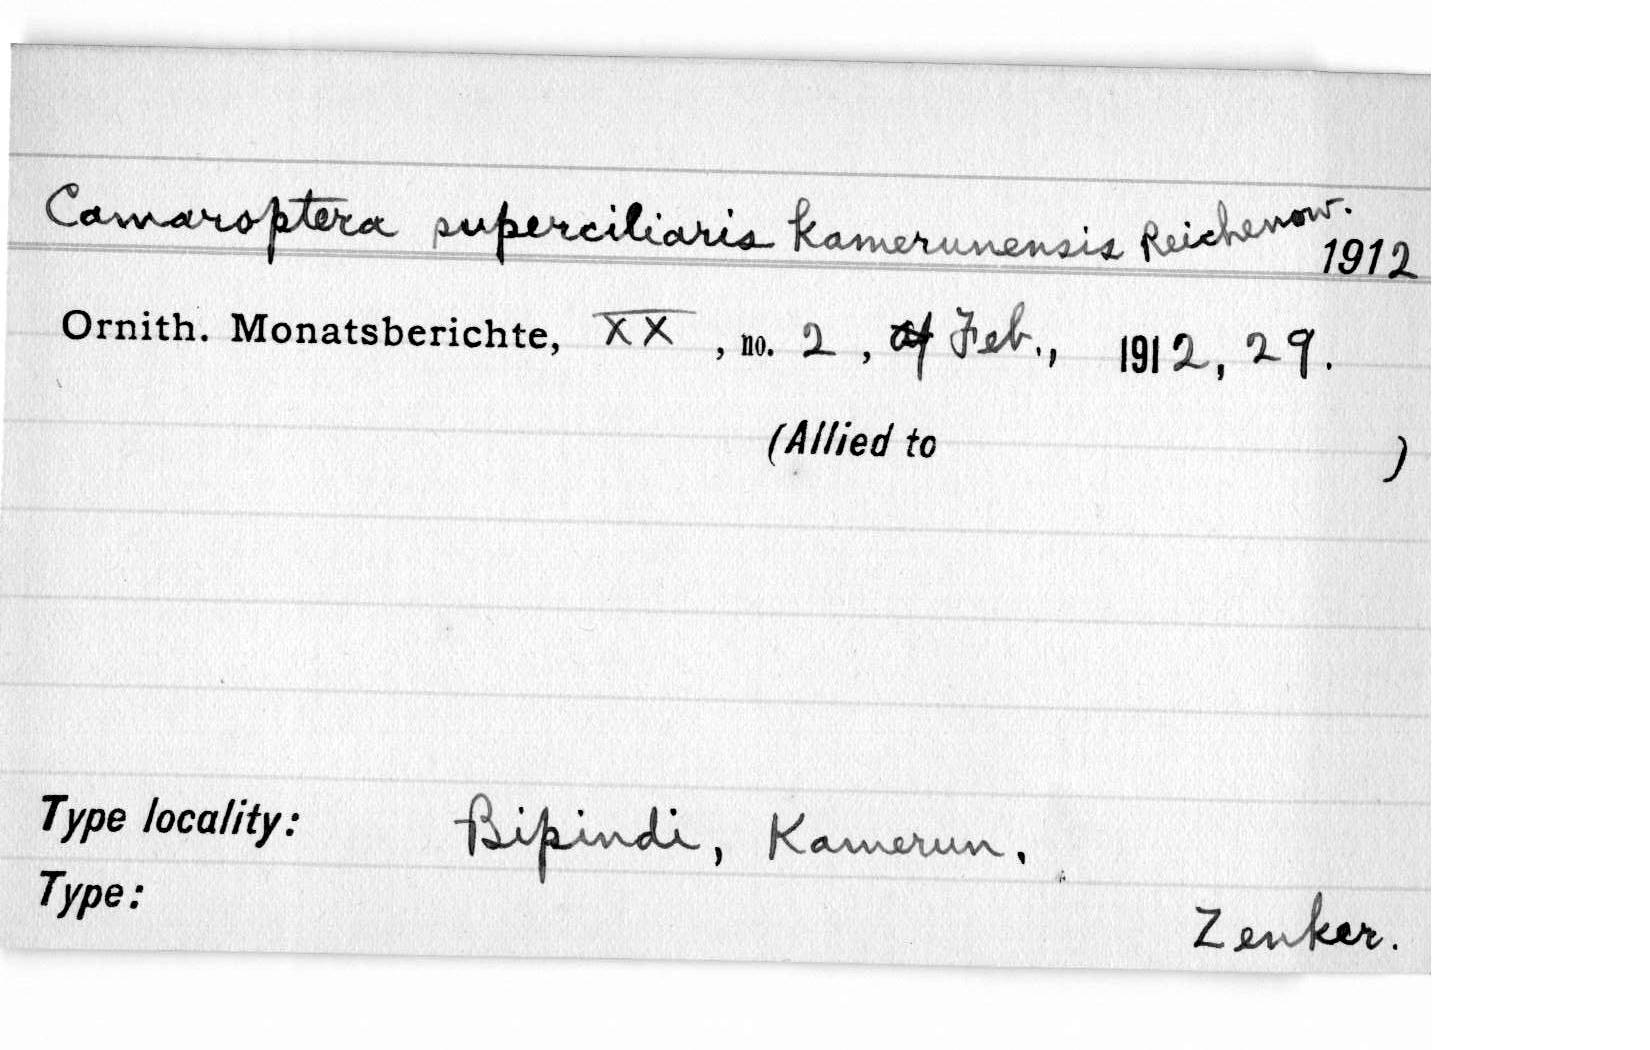 Camaroptera superciliaris kamerunensis Reichenow.
1912
Ornith. Monatsberichte, XX, no. 2, Feb., 1912, 29.
(Allied to )
Type locality: Bipindi, Kamerun.
Type:
Zenker.